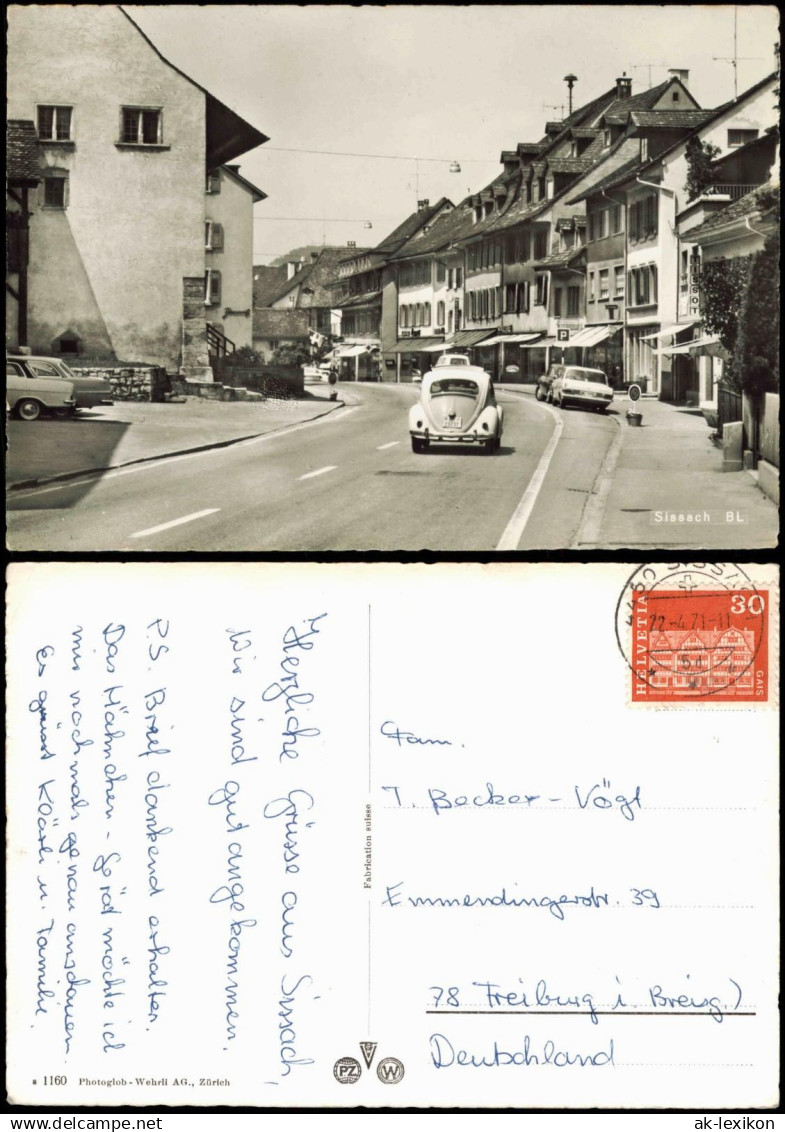 TISSOT
P
Sissach BL
4450 SISSACH
22-4.71-11
HELVETIA
30
GAIS
Herzliche Grüsse aus Sissach,
Wir sind gut angekommen.
P.S. Brief dankend erhalten.
Das Hähnchen-Gerät möchte ich
mir nochmals genau anschauen.
Es grüsst Kläri u. Familie.
Fam.
J. Becker-Vögt
Emmendingerstr. 39
78 Freiburg i. Breisg.)
Deutschland
Fabrication suisse
PZ
W
s 1160 Photoglob-Wehrli AG., Zürich
ak-lexikon